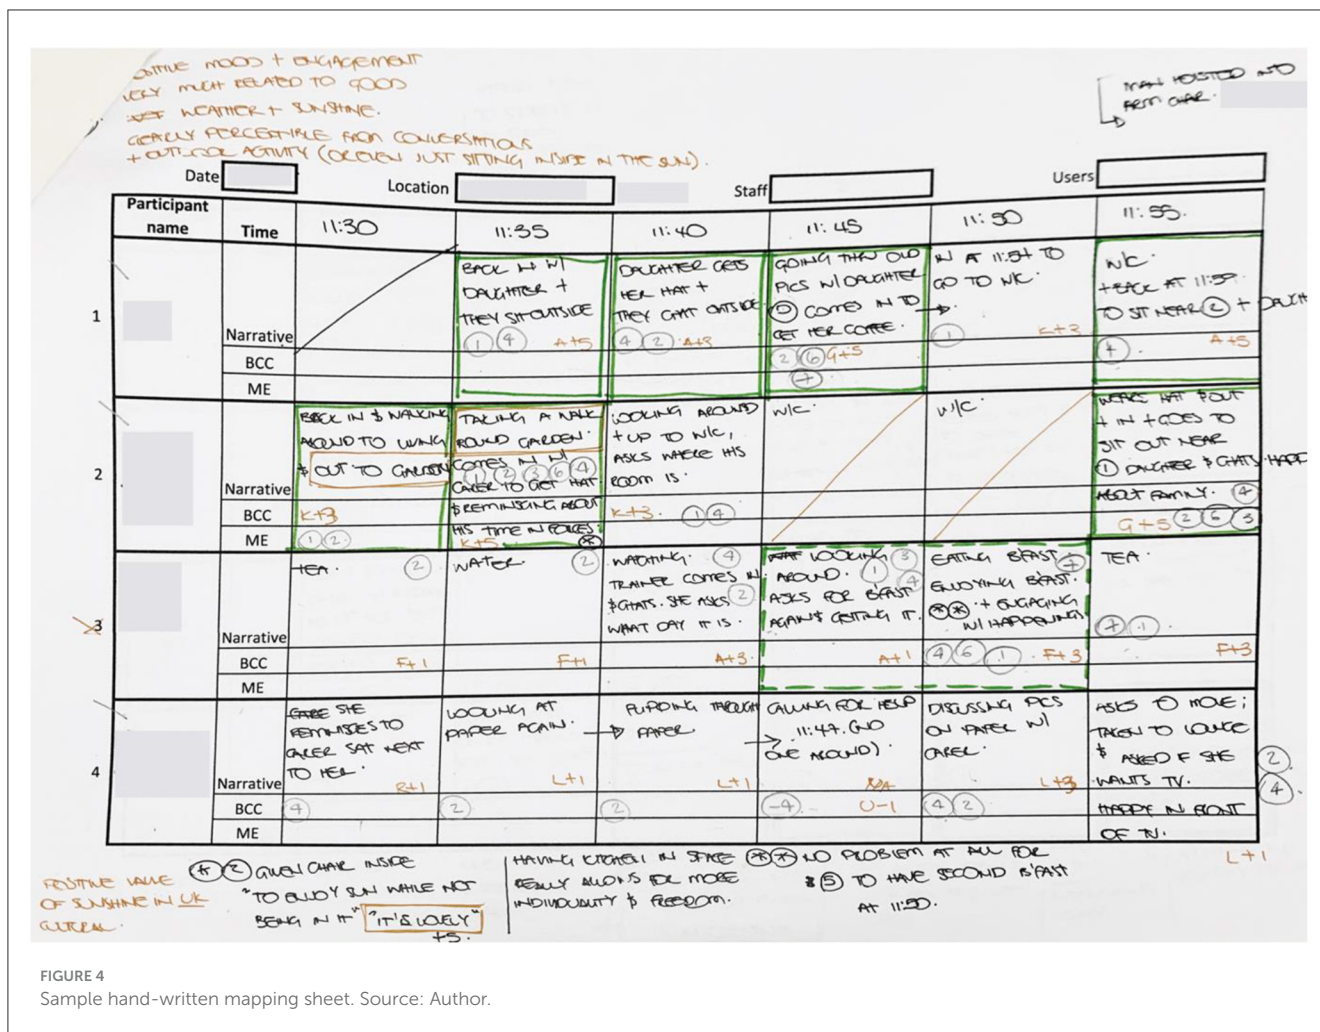 POSITIVE MOOD + ENGAGEMENT
VERY MUCH RELATED TO GOOD
WEATHER + SUNSHINE.
CLEARLY PERCEPTIBLE FROM CONVERSATIONS
+ OUTSIDE ACTIVITY (OR EVEN JUST SITTING INSIDE IN THE SUN).
MAN HOISTED INTO
ARM CHAIR.
Date Location Staff Users
Participant name Time 11:30 11:35 11:40 11:45 11:50 11:55.
1
Narrative
BCC
ME
BACK IN W/
DAUGHTER +
THEY SIT OUTSIDE
1 4 A+5
DAUGHTER GETS
HER HAT +
THEY CHAT OUTSIDE
4 2 A+3
GOING THRU OLD
PICS W/ DAUGHTER
COMES IN TO
GET HER COFFEE.
2 6 G+5
7
IN AT 11:54 TO
GO TO W/C.
1 K+3
W/C.
+ BACK AT 11:59
TO SIT NEAR 2 + DAUGH
A+5
2
Narrative
BCC
ME
BACK IN $ WALKING
AROUND TO LIVING
$ OUT TO GARDEN
K+3
1 2
TAKING A WALK
ROUND GARDEN.
COMES IN W/
1 2 3 6 4
CARER TO GET HAT
$ REMINISCING ABOUT
HIS TIME IN FORCES.
K+5 *
LOOKING AROUND
+ UP TO W/C,
ASKS WHERE HIS
ROOM IS.
K+3. 1 4
W/C.
W/C.
WEARS HAT $ OUT
+ IN + GOES TO
SIT OUT NEAR
1 DAUGHTER $ CHATS HAPP
ABOUT FAMILY. 4
G+5 2 6 3
3
Narrative
BCC
ME
TEA. 2
F+1
WATER. 2
F+1
WATCHING. 4
TRAINER COMES IN
$ CHATS. SHE ASKS 2
WHAT DAY IT IS.
A+3
LOOKING 3
AROUND. 1 4
ASKS FOR B'FAST
AGAIN $ GETTING IT.
A+1
EATING B'FAST 7
ENJOYING B'FAST.
** + ENGAGING
W/ HAPPENINGS
4 6 1 F+3
TEA.
7 1
F+3
4
Narrative
BCC
ME
SHE
REMINISCES TO
CARER SAT NEXT
TO HER.
R+1
4
LOOKING AT
PAPER AGAIN.
L+1
2
FLIPPING THROUGH
→ PAPER
L+1
2
CALLING FOR HELP
→ 11:47. (NO
ONE AROUND).
-4 U-1
DISCUSSING PICS
ON PAPER W/
CARER.
L+3
4 2
ASKS TO MOVE;
TAKEN TO LOUNGE
$ ASKED IF SHE 2
WANTS TV. 4
HAPPY IN FRONT
OF TV.
L+1
POSITIVE VALUE
OF SUNSHINE IN UK
CULTURAL.
* 2 GIVEN CHAIR INSIDE
"TO ENJOY SUN WHILE NOT
BEING IN IT" "IT'S LOVELY"
+5.
HAVING KITCHEN IN SPACE
REALLY ALLOWS FOR MORE
INDIVIDUALITY $ FREEDOM.
** NO PROBLEM AT ALL FOR
5 TO HAVE SECOND B'FAST
AT 11:50.
FIGURE 4
Sample hand-written mapping sheet. Source: Author.